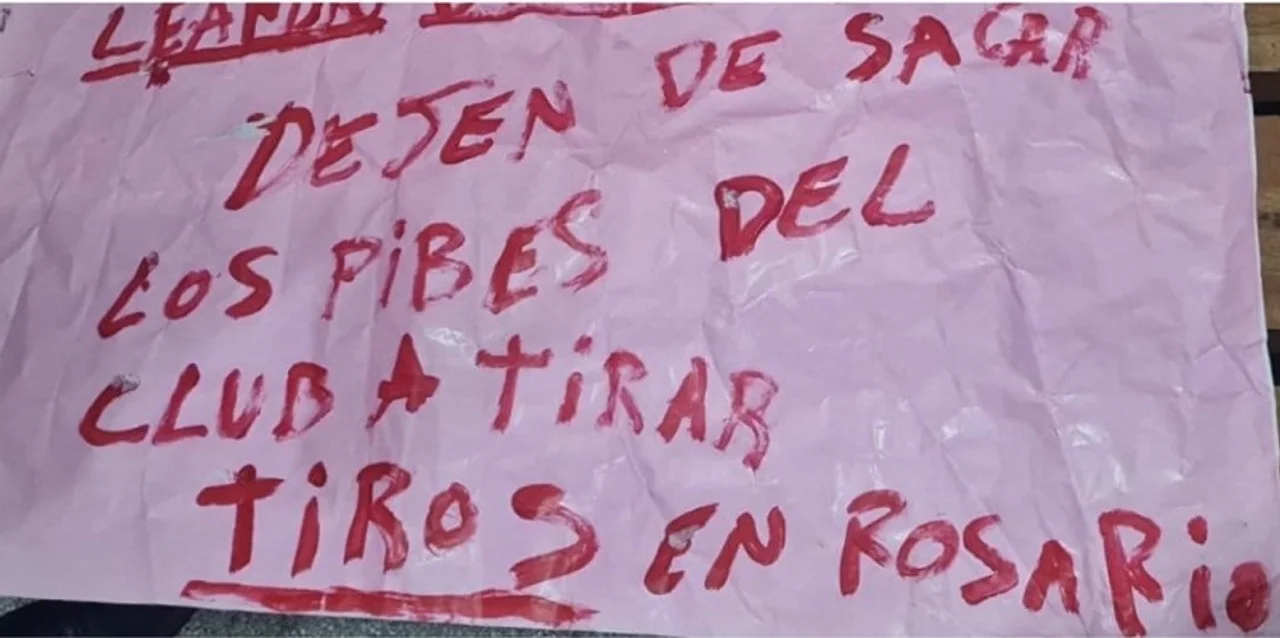 LEANDRO
DEJEN DE SACAR
LOS PiBES DEL
CLUB A TiRAR
TiROS EN ROSARiO